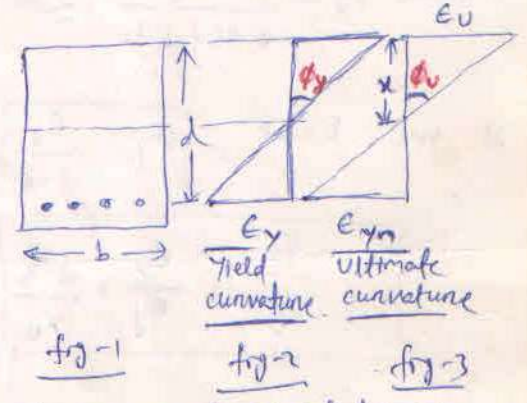 ϵu
ϕy
x
ϕu
d
b
ϵy
Yield
curvature.
ϵym
Ultimate
curvature
fig-1
fig-2
fig-3